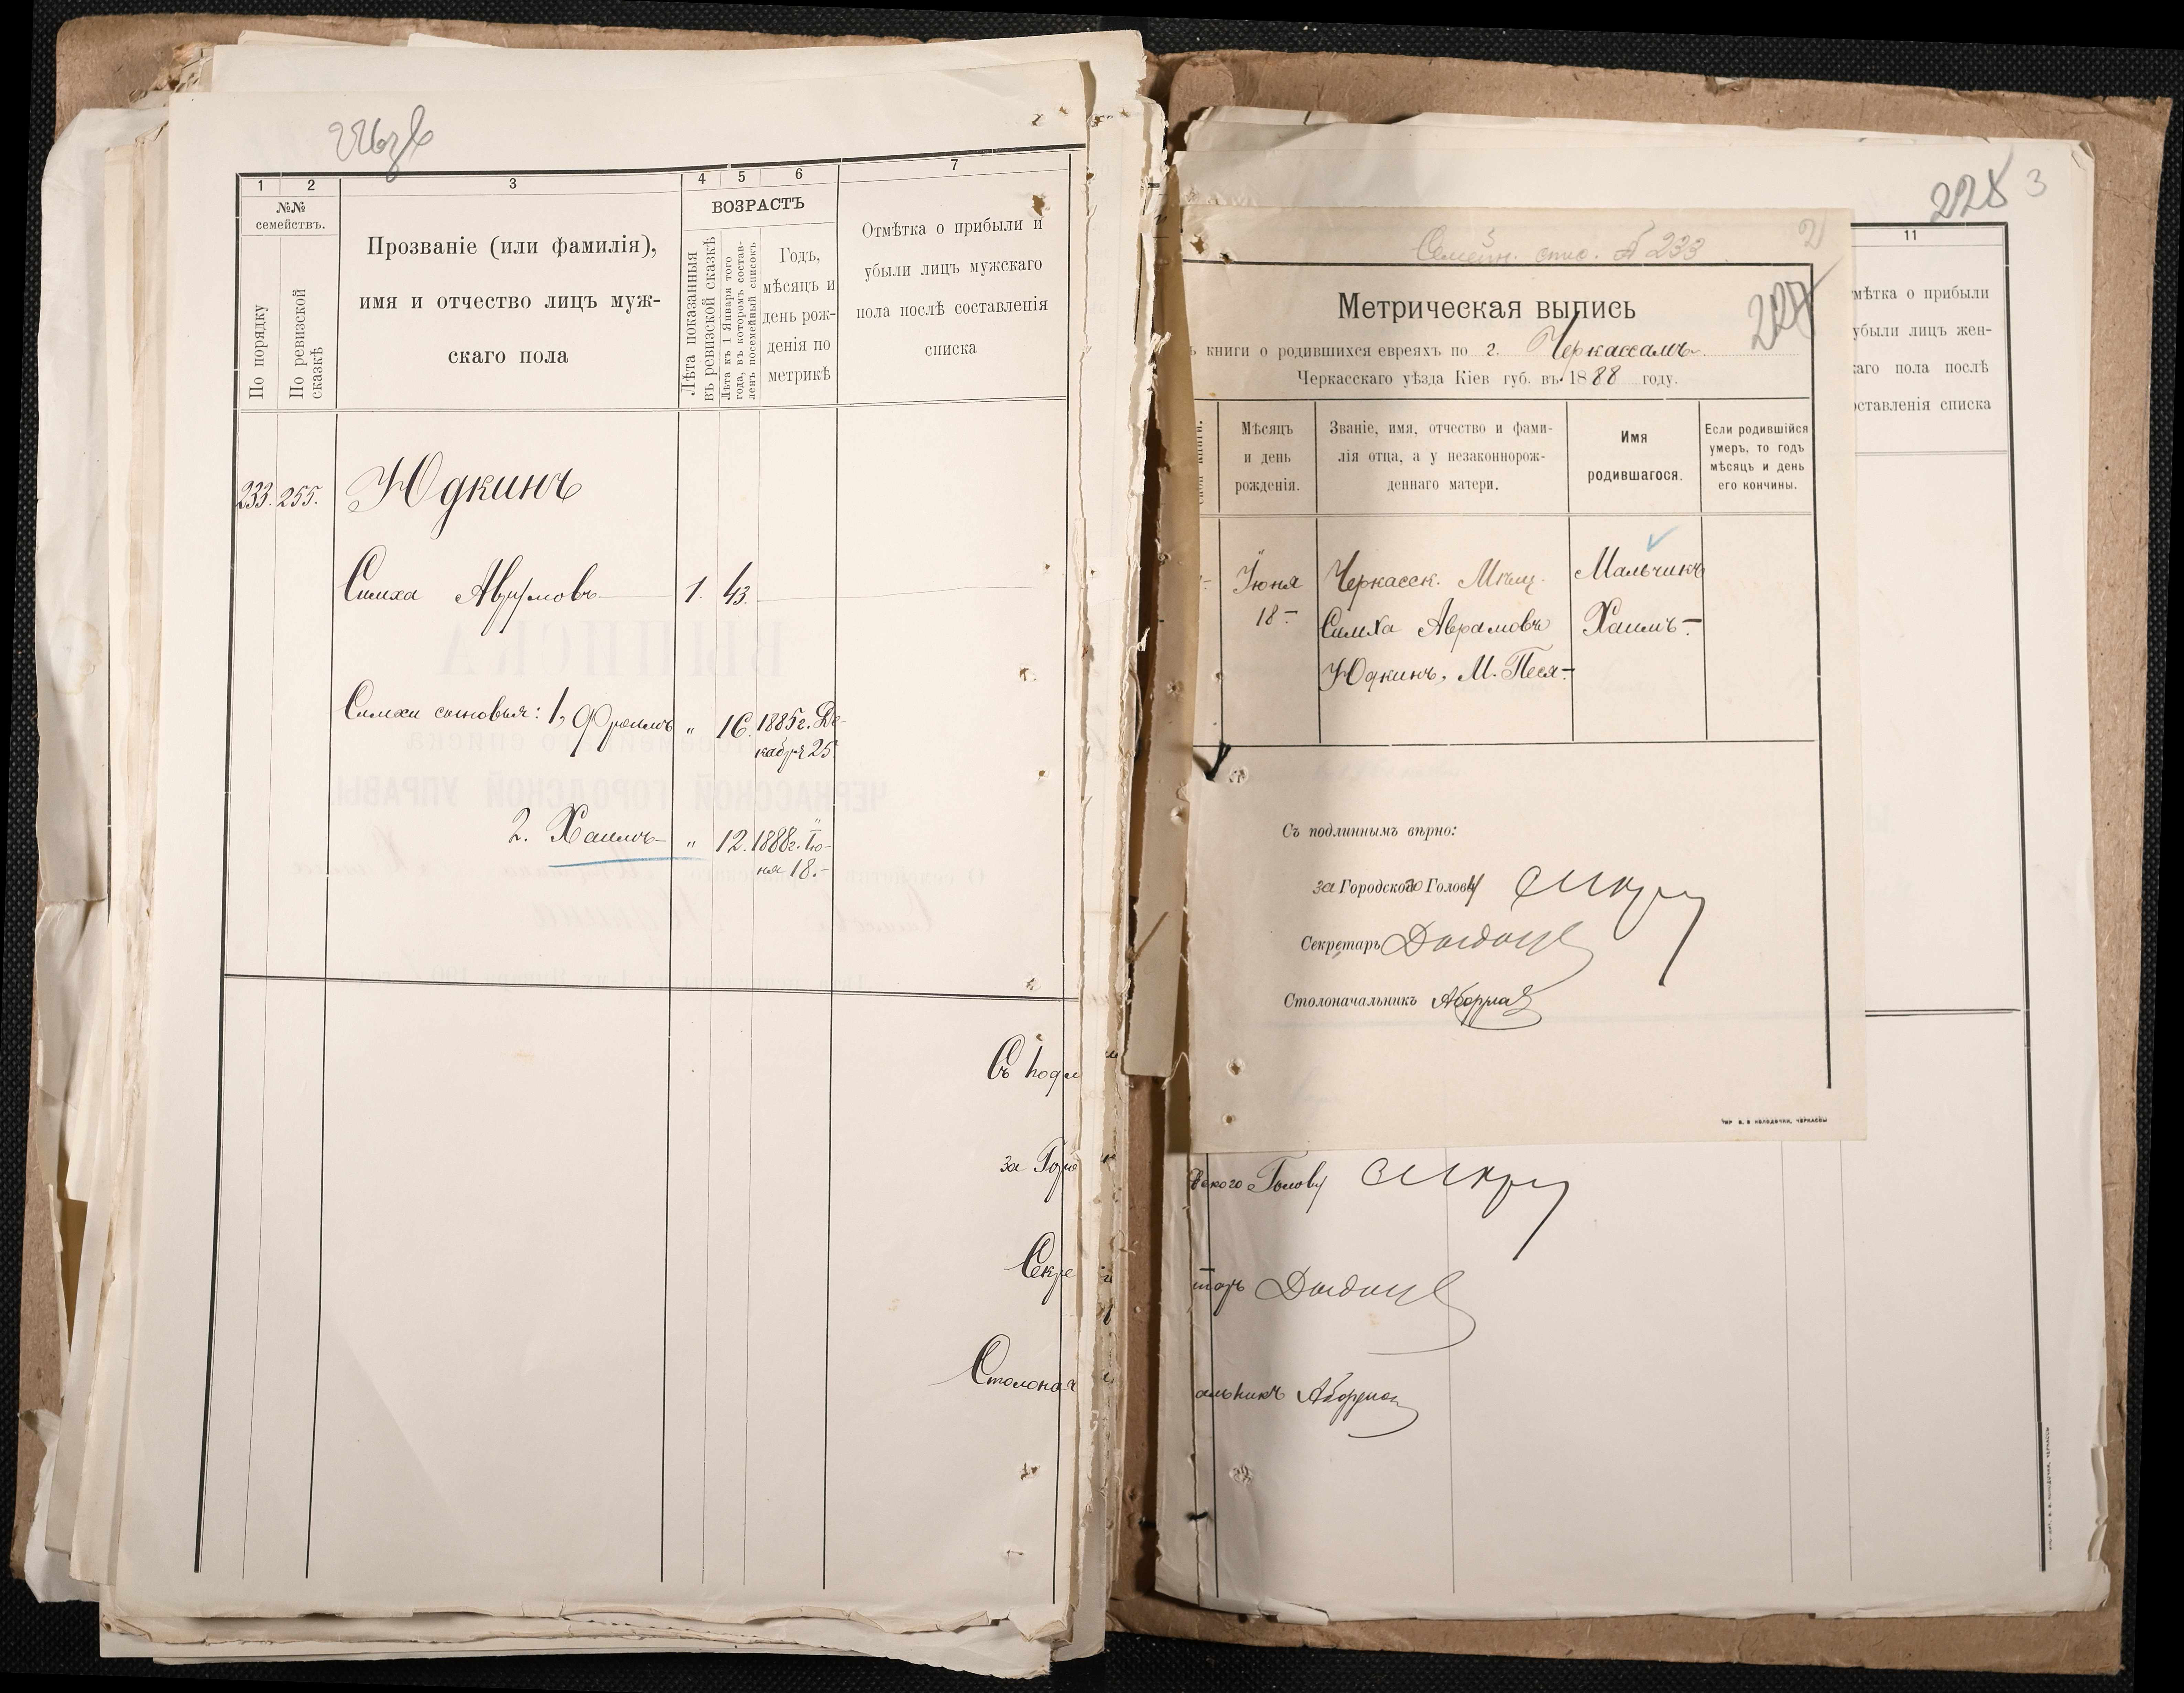 226об
1 2 3 4 5 6 7
№№ семействъ.
По порядку
По ревизской сказкѣ
Прозваніе (или фамилія),
имя и отчество лицъ муж-
скаго пола
ВОЗРАСТЪ
Лѣта показанныя
въ ревизской сказкѣ
Лѣта къ 1 Января того
года, въ которомъ состав-
ленъ посемейный списокъ
Годъ,
мѣсяцъ и
день рож-
денія по
метрикѣ
Отмѣтка о прибыли и
убыли лицъ мужскаго
пола послѣ составленія
списка
233. 255. Юдкинъ
Симха Аврумовъ 1. 43.
Симхи сыновья: 1, Фроимъ " 16. 1885 г. Де-
кабря 25.
2. Хаимъ " 12. 1888 г. Iю-
ня 18.-
Съ подл
за Горо
Секре
Столонач
228 3
11
мѣтка о прибыли
убыли лицъ жен-
каго пола послѣ
оставленія списка
Семейн. спис. № 233
2
227
Метрическая выпись
ъ книги о родившихся евреяхъ по г. Черкассамъ
Черкасскаго уѣзда Кіев губ. въ 1888 году.
Мѣсяцъ
и день
рожденія.
Званіе, имя, отчество и фами-
лія отца, а у незаконнорож-
деннаго матери.
Имя
родившагося.
Если родившійся
умеръ, то годъ
мѣсяцъ и день
его кончины.
Iюня Черкасск. Мѣщ. Мальчикъ
18- Симха Аврамовъ Хаимъ-
Юдкинъ, М. Песя-
Съ подлиннымъ вѣрно:
за Городского Голову
Секретарь
Столоначальникъ
Тир В. В КОЛОДОЧКИ, ЧЕРКАССЫ
скаго Голову
тарь
альникъ